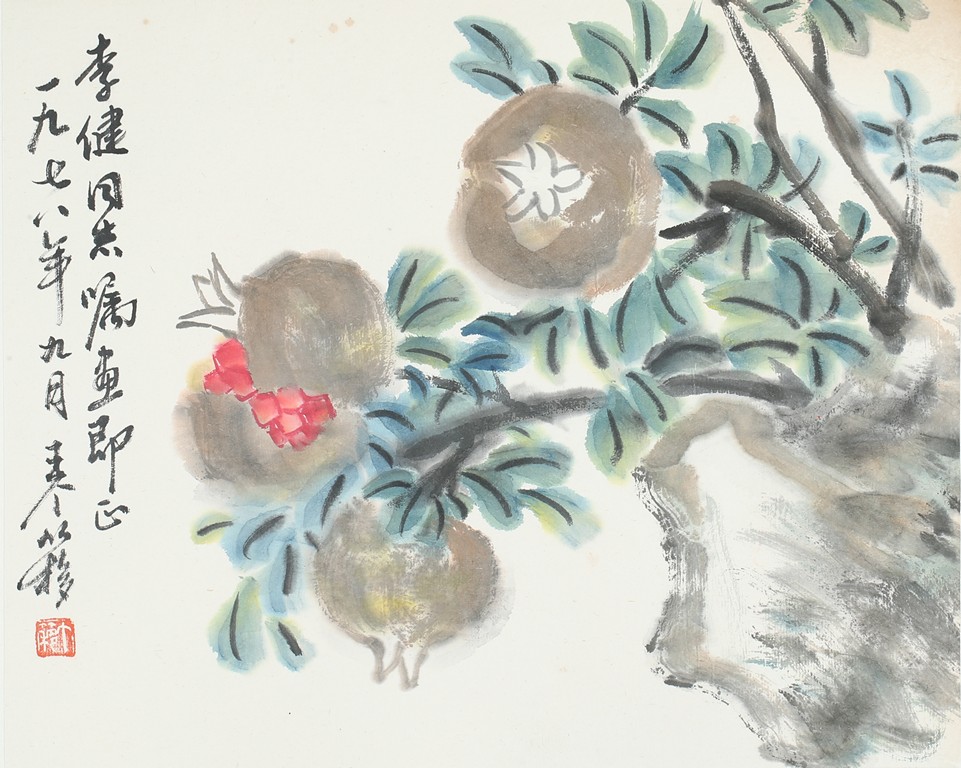 李健同志嘱画即正
一九七八年九月 来楚移